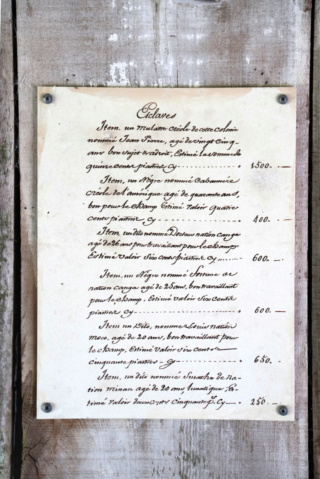 Esclaves
Item, un mulatre créole de cette colonie
nommé Jean Pierre, agé de vingt cinq
ans bon sujet et adroit, Estimé la somme de
quinze cents piastres Cy 1500. —
Item, un Nègre nommé
créole de l'amérique agé de quarante ans,
bon pour le champ Estimé valoir quatre
cents piastres Cy 400. —
Item, un dito nommé nation canga
agé de 26 ans pour travaillant pour le champ
Estimé valoir Six cents piastres Cy 600. —
Item, un Nègre nommé de
nation canga agé de 25 ans, bon travaillant
pour le champ, Estimé valoir Six cents
piastres Cy 600 —
Item un Dito, nommé Louis nation
moco, agé de 20 ans, bon travaillant pour
le champ, Estimé valoir Six cents
cinquante piastres Cy 650. —
Item, un dito nommé de Na-
tion minan agé de 20 ans lunatique, Es-
timé valoir deux cents cinquante p. Cy 250 —